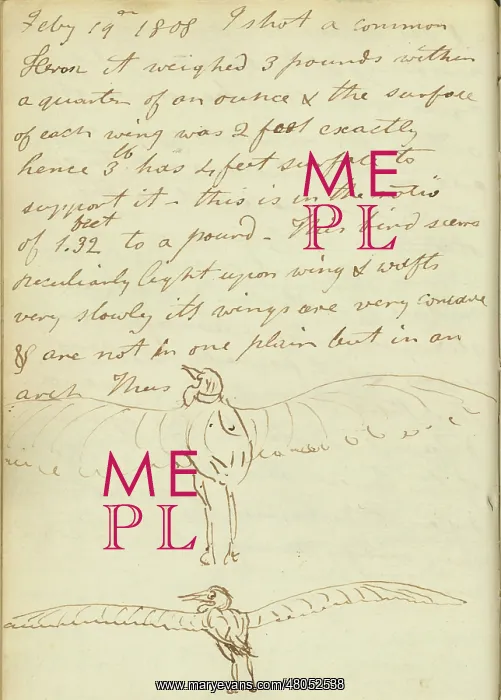 Feby 19th 1808 I shot a common
Heron it weighed 3 pounds within
a quarter of an ounce & the surface
of each wing was 2 feet exactly
hence 3 lb has 4 feet surface to
support it - this is in the ratio
of 1.32 feet to a pound - This bird seems
peculiarly light upon wing & wafts
very slowly its wings are very concave
& are not in one plain but in an
arch Thus
ME
PL
ME
PL
www.maryevans.com/48052538